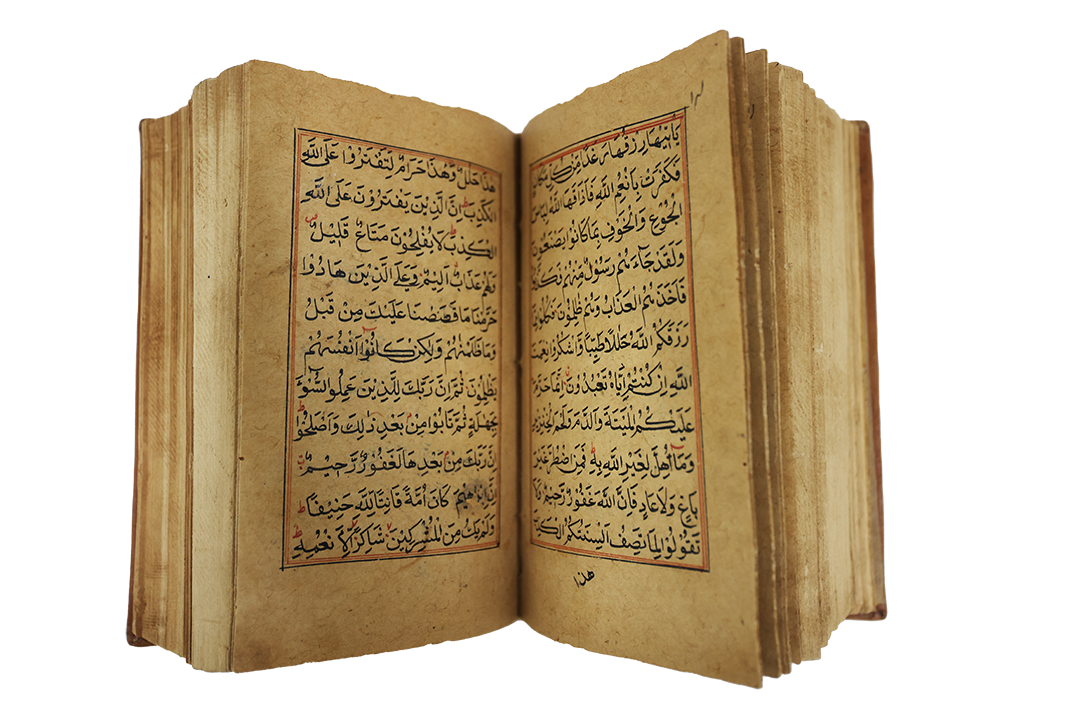 يَأْتِيهَا رِزْقُهَا رَغَدًا مِّنْ كُلِّ مَكَانٍ
فَكَفَرَتْ بِاَنْعُمِ اللّٰهِ فَاَذَاقَهَا اللّٰهُ لِبَاسَ
الْجُوْعِ وَالْخَوْفِ بِمَا كَانُوْا يَصْنَعُوْنَ
وَلَقَدْ جَآءَهُمْ رَسُوْلٌ مِنْهُمْ فَكَذَّبُوهُ
فَاَخَذَهُمُ الْعَذَابُ وَهُمْ ظٰلِمُوْنَ فَكُلُوْا مِمَّا
رَزَقَكُمُ اللّٰهُ حَلٰلًا طَيِّبًا وَّاشْكُرُوْا نِعْمَتَ
اللّٰهِ اِنْ كُنْتُمْ اِيَّاهُ تَعْبُدُوْنَ اِنَّمَا حَرَّمَ
عَلَيْكُمُ الْمَيْتَةَ وَالدَّمَ وَلَحْمَ الْخِنْزِيْرِ
وَمَآ اُهِلَّ لِغَيْرِ اللّٰهِ بِهٖ فَمَنِ اضْطُرَّ غَيْرَ
بَاغٍ وَلَا عَادٍ فَاِنَّ اللّٰهَ غَفُوْرٌ رَحِيْمٌ وَلَا
تَقُوْلُوْا لِمَا تَصِفُ اَلْسِنَتُكُمُ الْكَذِبَ
هٰذا
هٰذَا حَلٰلٌ وَّهٰذَا حَرَامٌ لِتَفْتَرُوْا عَلَى اللّٰهِ
الْكَذِبَ اِنَّ الَّذِيْنَ يَفْتَرُوْنَ عَلَى اللّٰهِ
الْكَذِبَ لَا يُفْلِحُوْنَ مَتَاعٌ قَلِيْلٌ
وَلَهُمْ عَذَابٌ اَلِيْمٌ وَعَلَى الَّذِيْنَ هَادُوْا
حَرَّمْنَا مَا قَصَصْنَا عَلَيْكَ مِنْ قَبْلُ
وَمَا ظَلَمْنٰهُمْ وَلٰكِنْ كَانُوْٓا اَنْفُسَهُمْ
يَظْلِمُوْنَ ثُمَّ اِنَّ رَبَّكَ لِلَّذِيْنَ عَمِلُوا السُّوْٓءَ
بِجَهٰلَةٍ ثُمَّ تَابُوْا مِنْ بَعْدِ ذٰلِكَ وَاَصْلَحُوْٓا
اِنَّ رَبَّكَ مِنْ بَعْدِهَا لَغَفُوْرٌ رَّحِيْمٌ
اِنَّ اِبْرٰهِيْمَ كَانَ اُمَّةً قَانِتًا لِلّٰهِ حَنِيْفًا
وَلَمْ يَكُ مِنَ الْمُشْرِكِيْنَ شَاكِرًا لِّاَنْعُمِهٖ